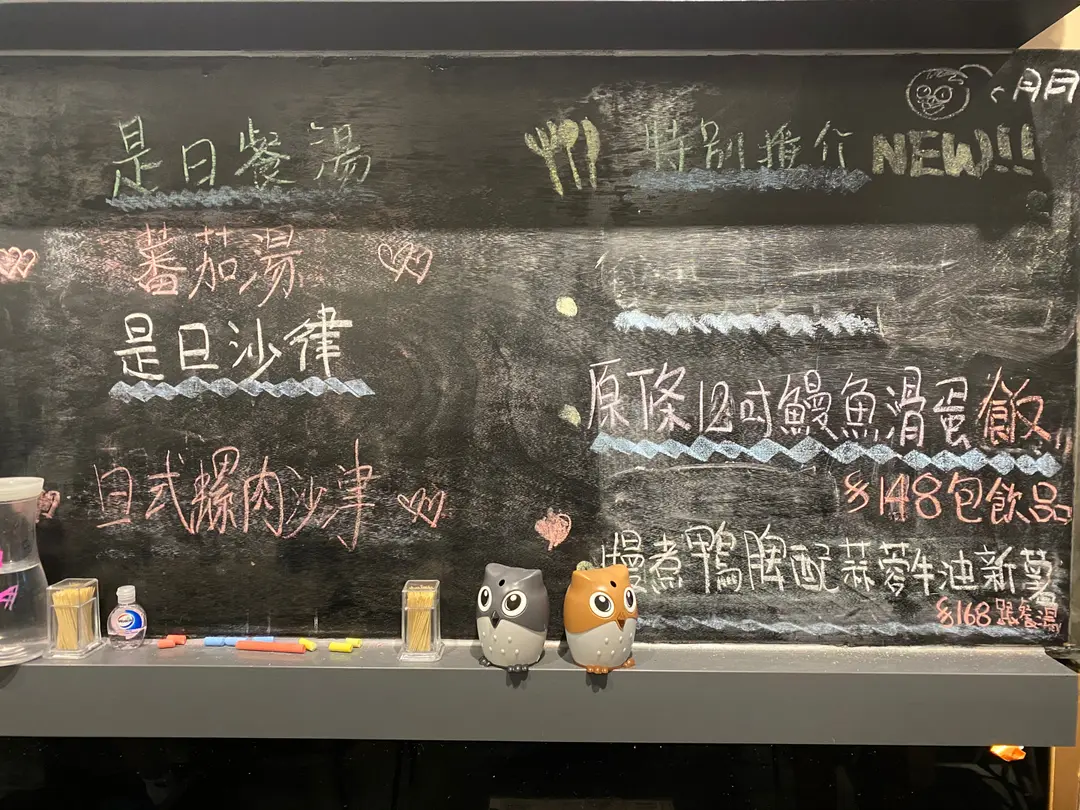 是日餐湯
蕃茄湯
是日沙律
日式螺肉沙津
特別推介 NEW!!
原條12吋鰻魚滑蛋飯
$148包飲品
慢煮鴨脾配蒜蓉牛油新薯
$168 跟餐湯